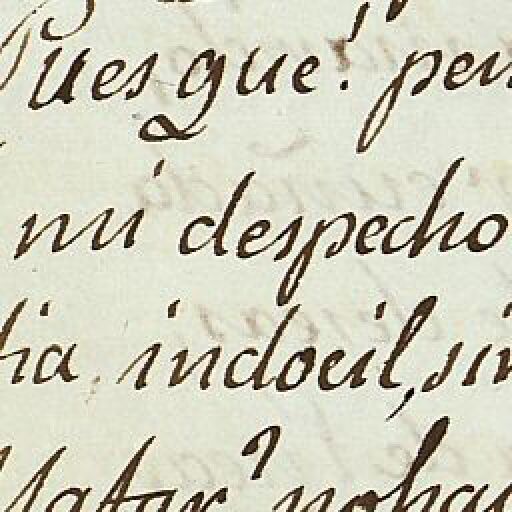 Pues que! pen
mi despecho
tia indocil, sin
Matar? no hai